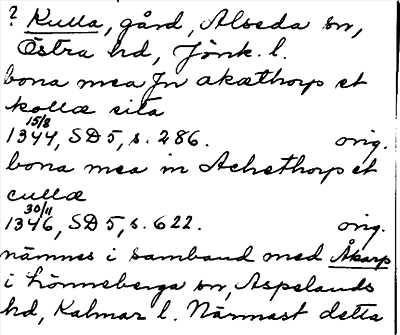 ? Kulla, gård, Alseda sn,
Östra hd, Jönk. l.
bona mea Jn akæthorp et
kollæ sita
15/8
1344, SD5, s. 286. orig.
bona mea in Achethorp et
cullæ
30/11
1346, SD5, s. 622. orig.
nämnes i samband med Åkarp
i Lönneberga sn, Aspelands
hd, Kalmar l. Närmast detta